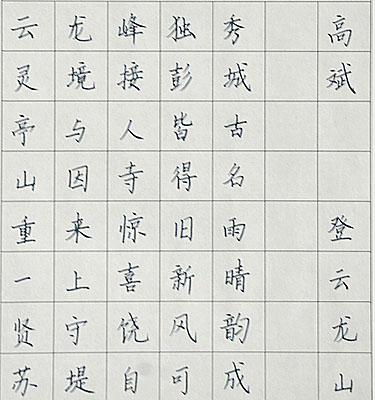 云龙峰独秀
灵境接彭城
亭与人皆古
山因寺得名
重来惊旧雨
一上喜新晴
贤守饶风韵
苏堤自可成
高斌
登云龙山